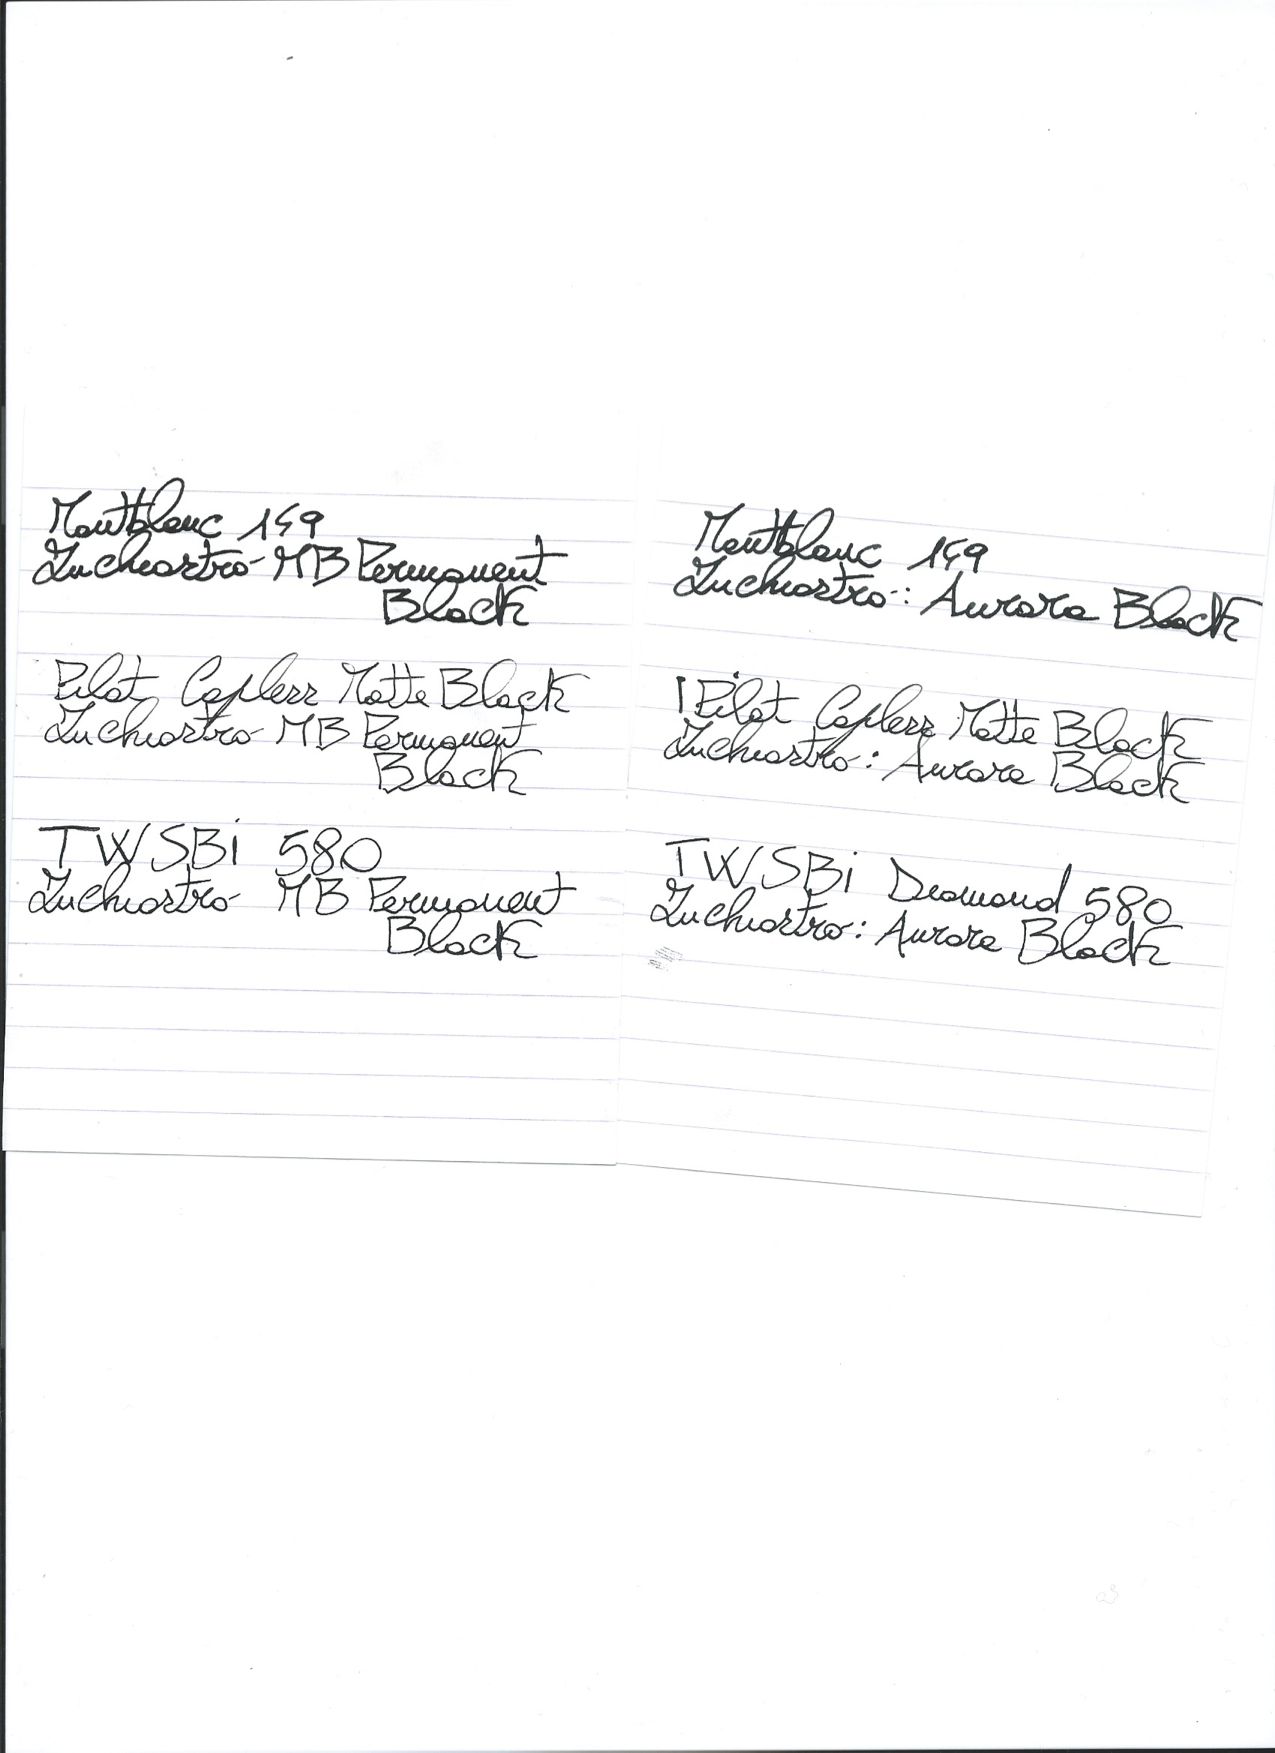 Montblanc 149
Inchiostro MB Permanent
Black
Pilot Capless Matte Black
Inchiostro MB Permanent
Black
TWSBi 580
Inchiostro MB Permanent
Black
Montblanc 149
Inchiostro: Aurora Black
Pilot Capless Matte Black
Inchiostro: Aurora Black
TWSBi Diamond 580
Inchiostro: Aurora Black